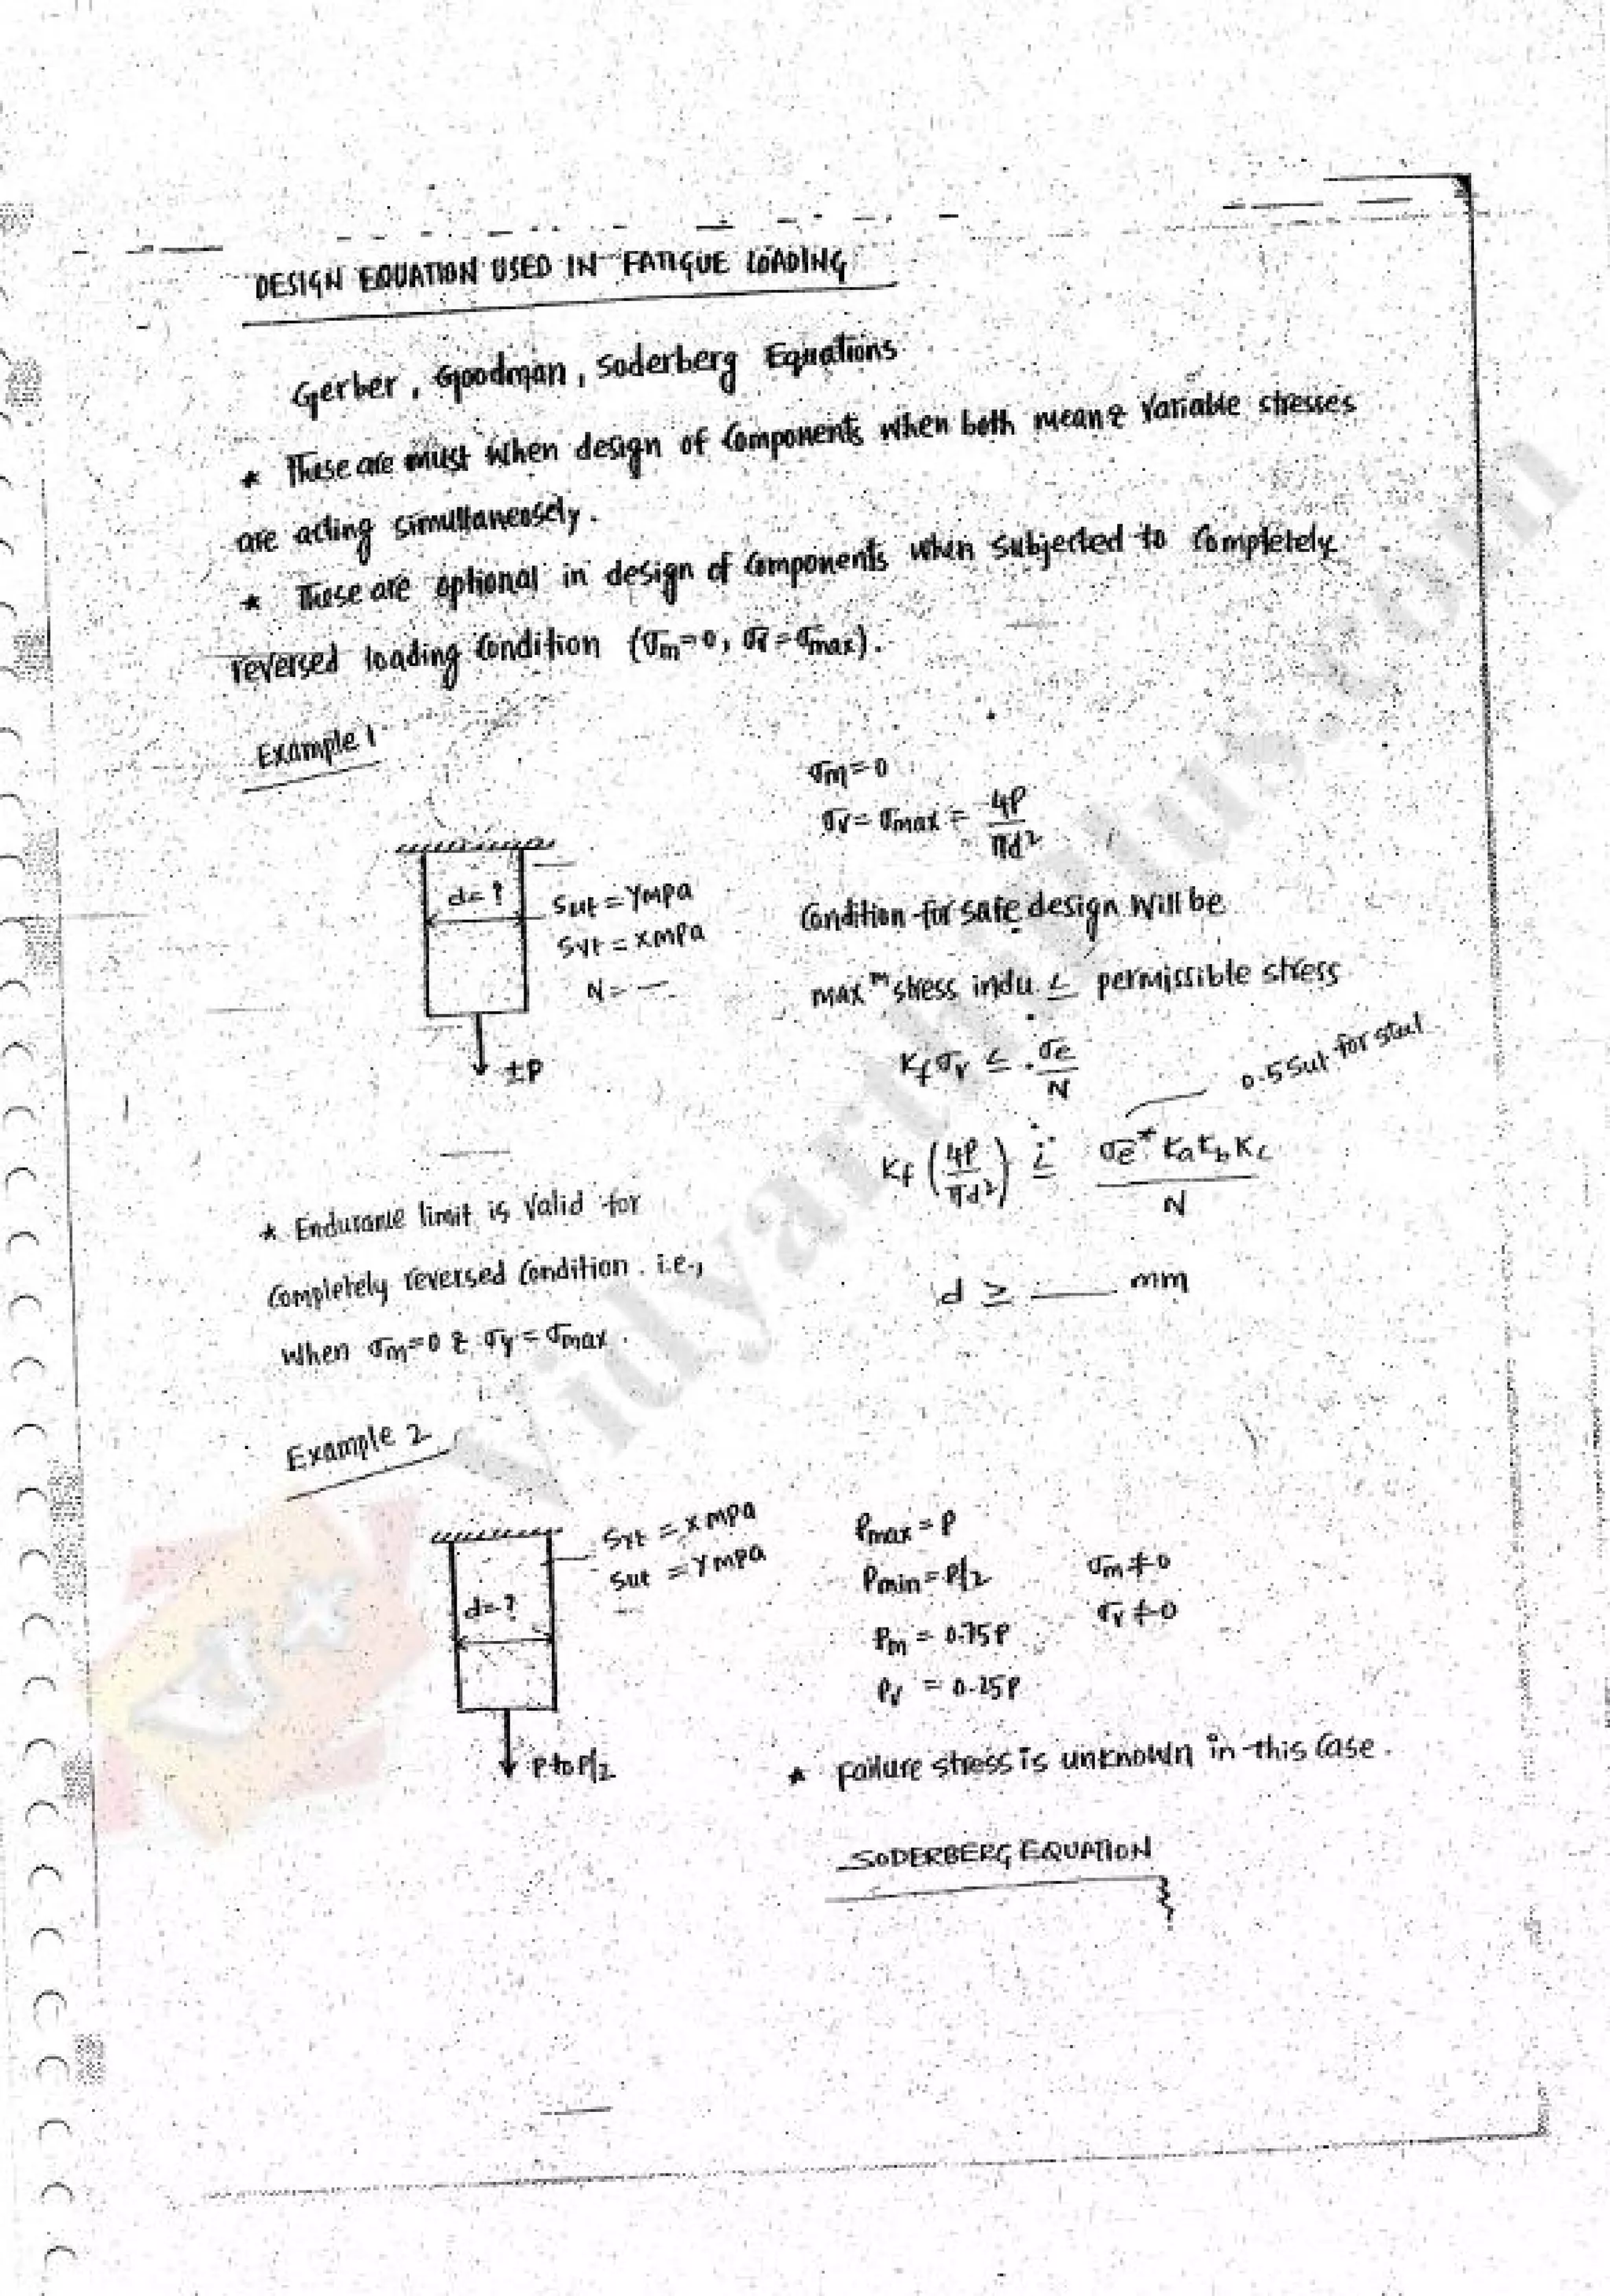 DESIGN EQUATION USED IN FATIGUE LOADING
Gerber, Goodman, Soderberg Equations
* These are must when design of Components when both mean & Variable stresses
are acting simultaneosely.
* These are optional in design of Components when subjected to Completely
reversed loading Condition (σm=0, σv=σmax).
Example 1
σm=0
σv=σmax = 4P/πd²
d=?
Sut = YMpa
Syt = XMpa
N= —
±P
Condition for safe design Will be
maxᵐ stress indu. ≤ permissible stress
Kf σv ≤ σe/N
0.5 Sut for steel
Kf (4P/πd²) ≤ σe* Ka Kb Kc/N
d ≥ ___ mm
* Endurance limit is Valid for
Completely reversed Condition. i.e.,
When σm=0 & σv=σmax.
Example 2
Syt = XMpa
Sut = YMpa
d=?
P to P/2
Pmax = P
Pmin = P/2
σm≠0
Pm = 0.75P
σv≠0
Pv = 0.25P
* Failure stress is unknown in this Case.
SODERBERG EQUATION
Vidyarthiplus.com
V+